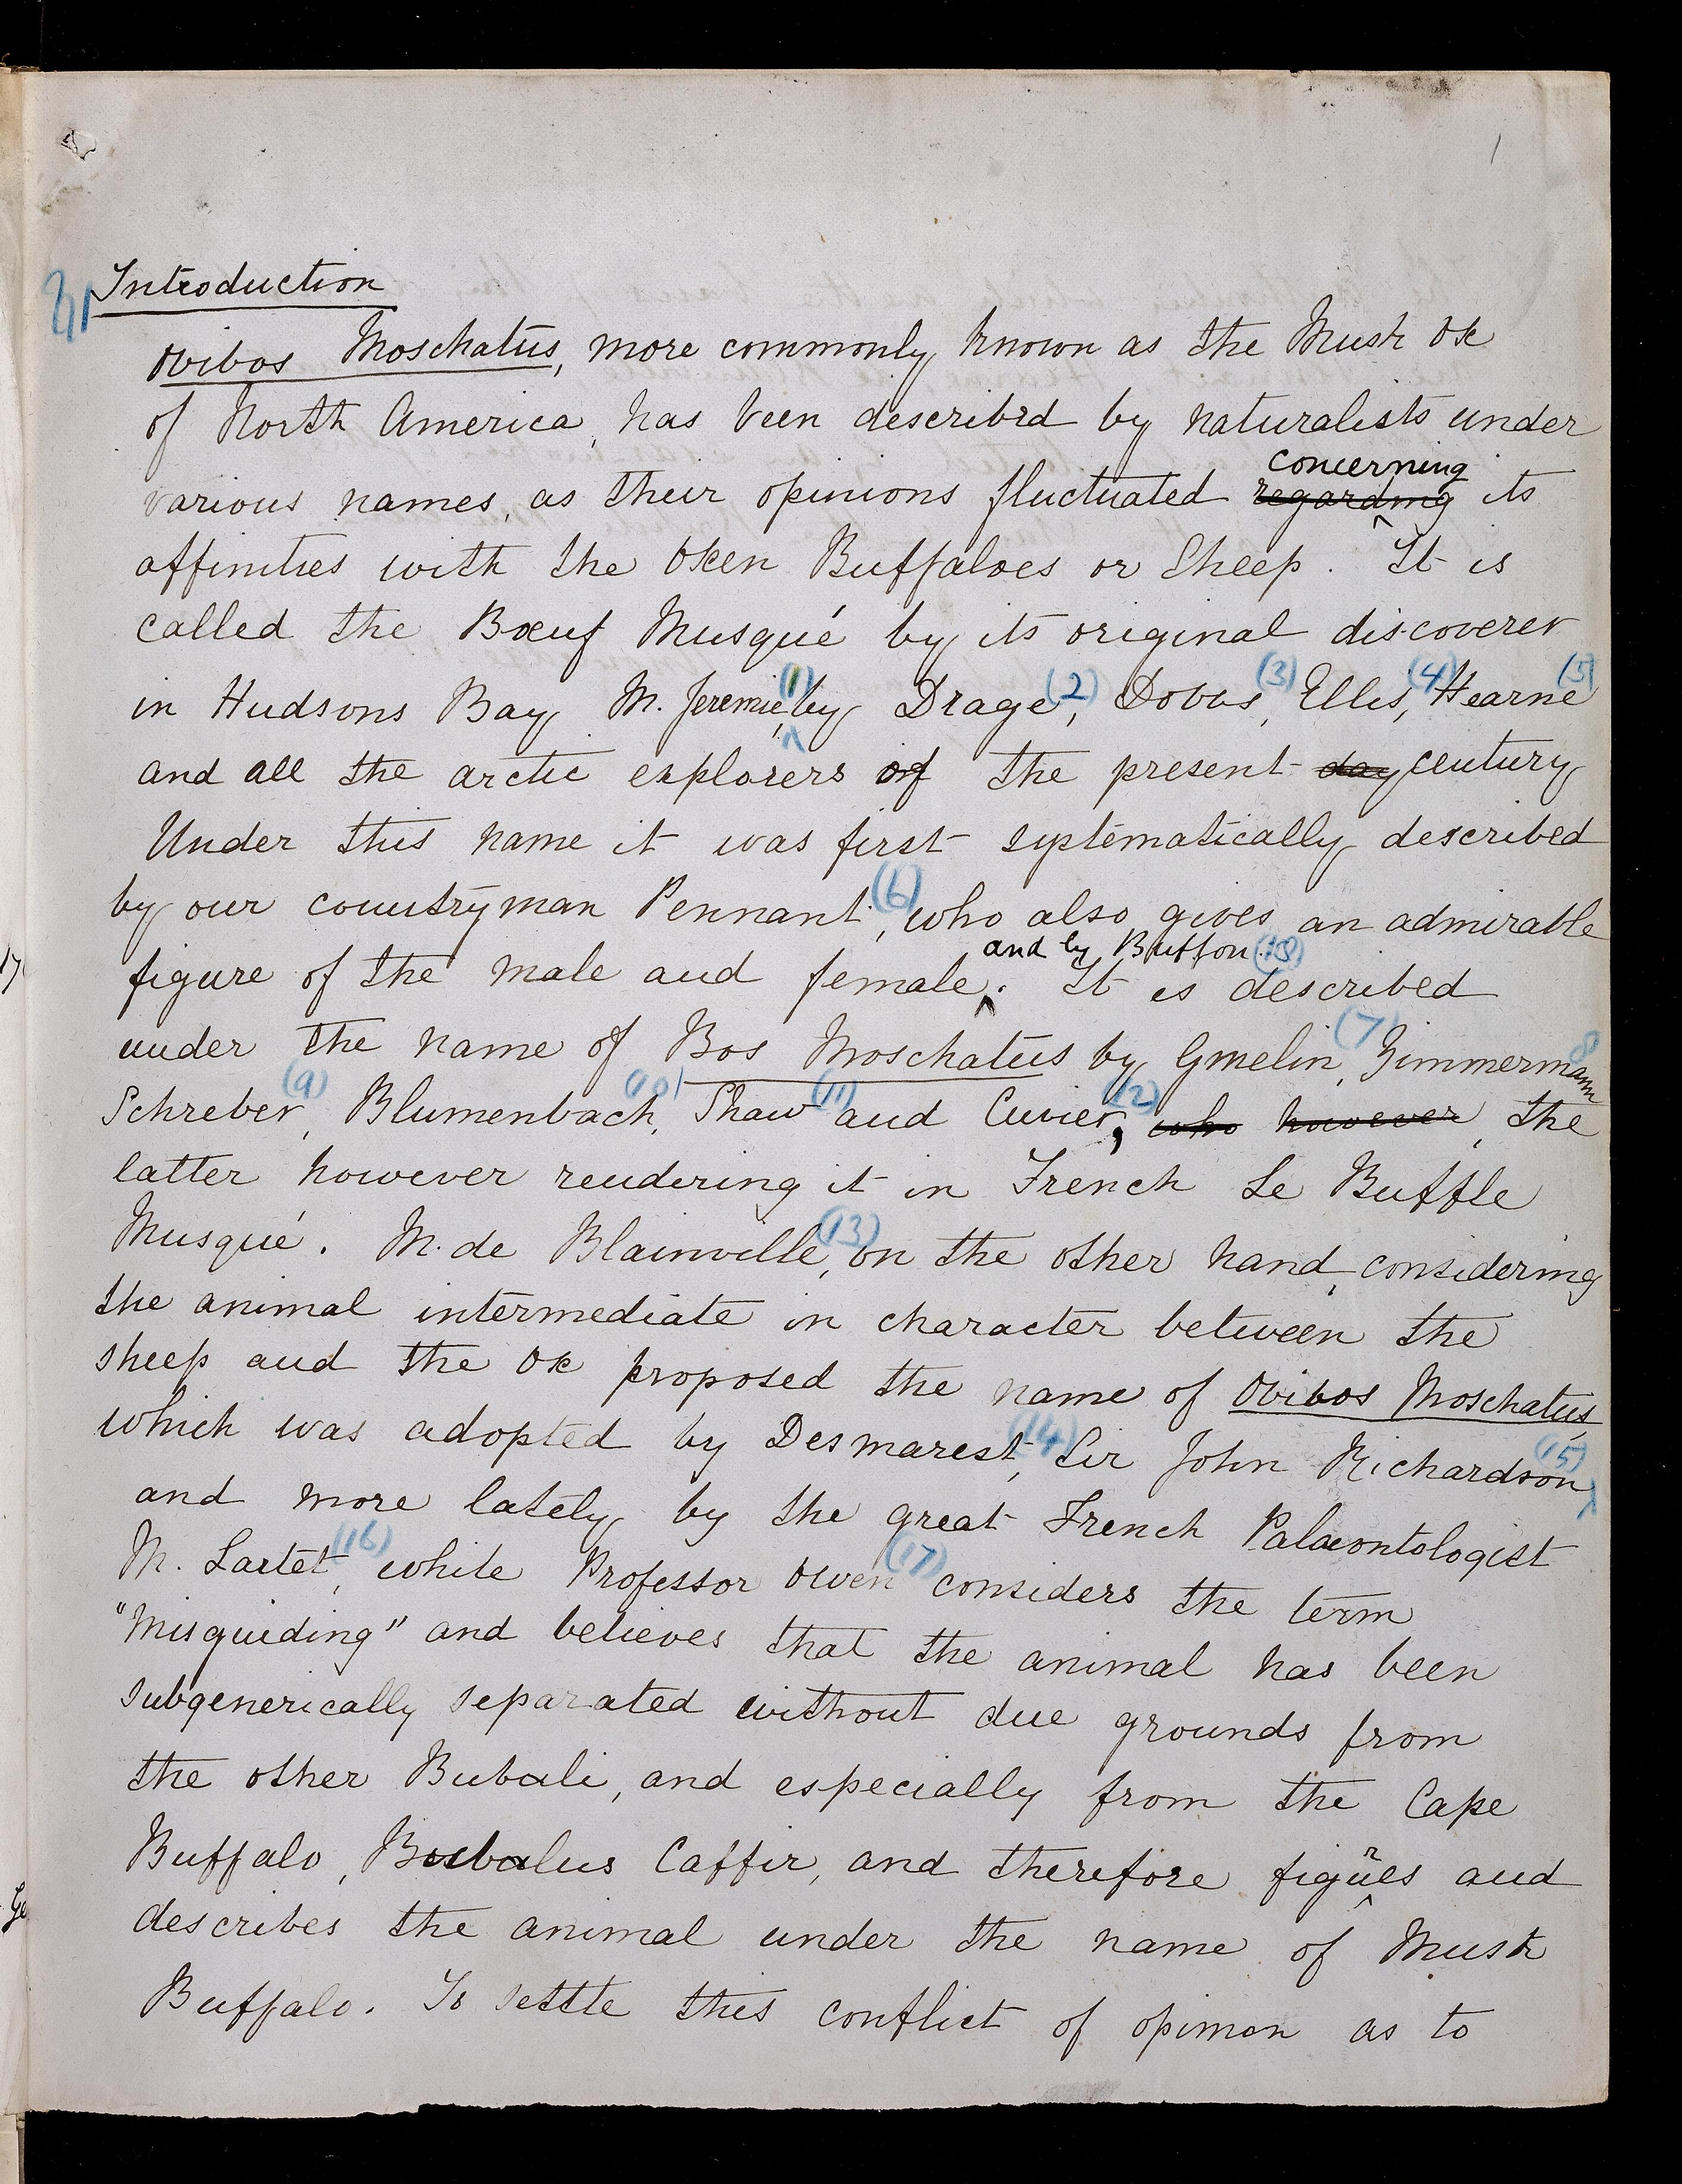 1
§1 Introduction
Ovibos Moschatus, more commonly known as the Musk Ox
of North America, has been described by naturalists under
various names, as their opinions fluctuated regarding concerning its
affinities with the Oxen Buffaloes or Sheep. It is
called the Bœuf Musqué by its original discoverer
in Hudsons Bay M. Jeremie,(1) by Drage(2), Dobbs(3), Ellis(4), Hearne(5)
and all the arctic explorers of the present day century
Under this name it was first systematically described
by our countryman Pennant(6), who also gives an admirable
figure of the male and female and by Buffon(18). It is described
under the name of Bos Moschatus by Gmelin(7), Zimmermann 8
Schreber(9), Blumenbach(10), Shaw(11) and Cuvier(12), who however, the
latter however rendering it in French Le Buffle
Musqué. M. de Blainville(13), on the other hand, considering
the animal intermediate in character between the
sheep and the Ox proposed the name of Ovibos Moschatus,
which was adopted by Desmarest(14), Sir John Richardson(15)
and more lately by the great French Palæontologist
M. Lartet(16), while Professor Owen(17) considers the term
"misguiding" and believes that the animal has been
subgenerically separated without due grounds from
the other Bubali, and especially from the Cape
Buffalo, Bubalus Caffir, and therefore figures and
describes the animal under the name of Musk
Buffalo. To settle this conflict of opinion as to